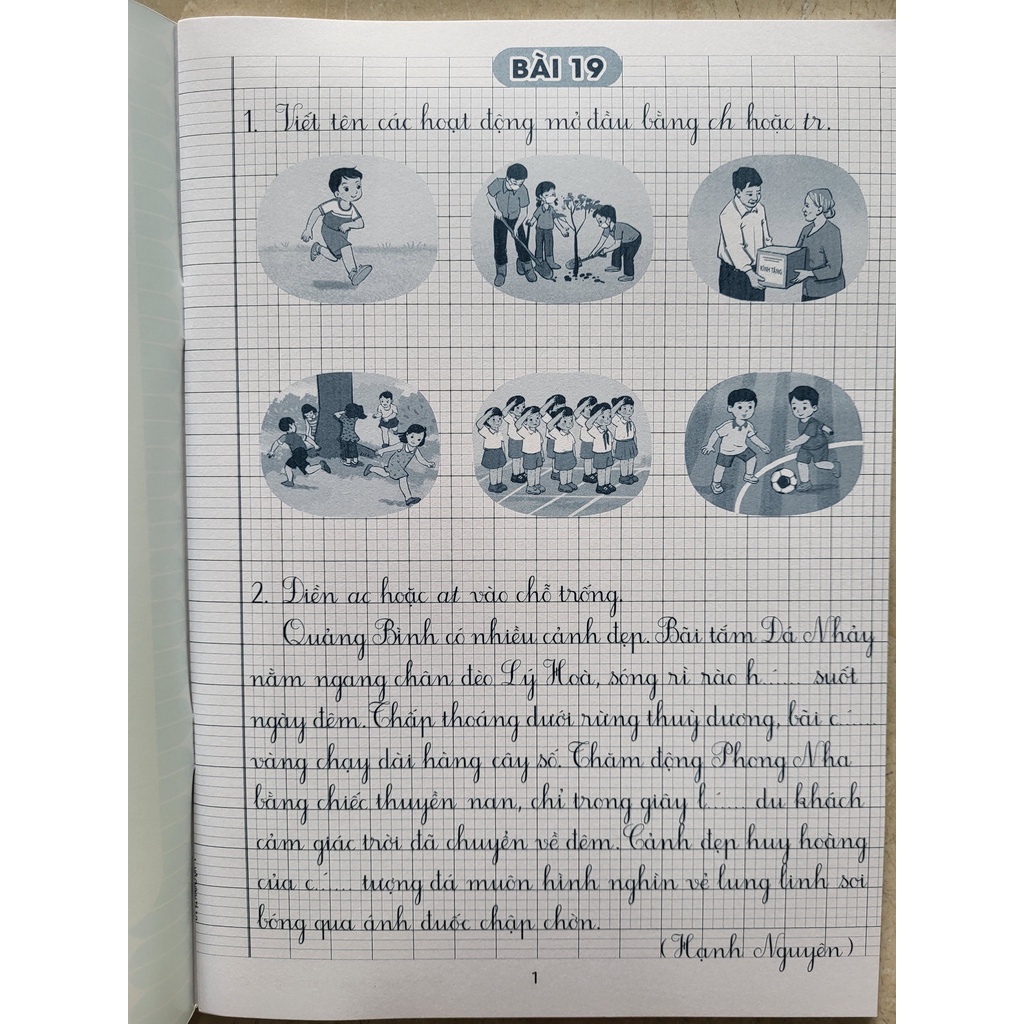 BÀI 19
1. Viết tên các hoạt động mở đầu bằng ch hoặc tr.
KÍNH TẶNG
2. Điền ac hoặc at vào chỗ trống.
Quảng Bình có nhiều cảnh đẹp. Bãi tắm Đá Nhảy
nằm ngang chân đèo Lý Hoà, sóng rì rào h..́.... suốt
ngày đêm. Thấp thoáng dưới rừng thuỳ dương, bài c..́....
vàng chạy dài hàng cây số. Thăm động Phong Nha
bằng chiếc thuyền nan, chỉ trong giây l..́.... du khách
cảm giác trời đã chuyển về đêm. Cảnh đẹp huy hoàng
của c..́.... tượng đá muôn hình nghìn vẻ lung linh soi
bóng qua ánh đuốc chập chờn.
(Hạnh Nguyên)
1